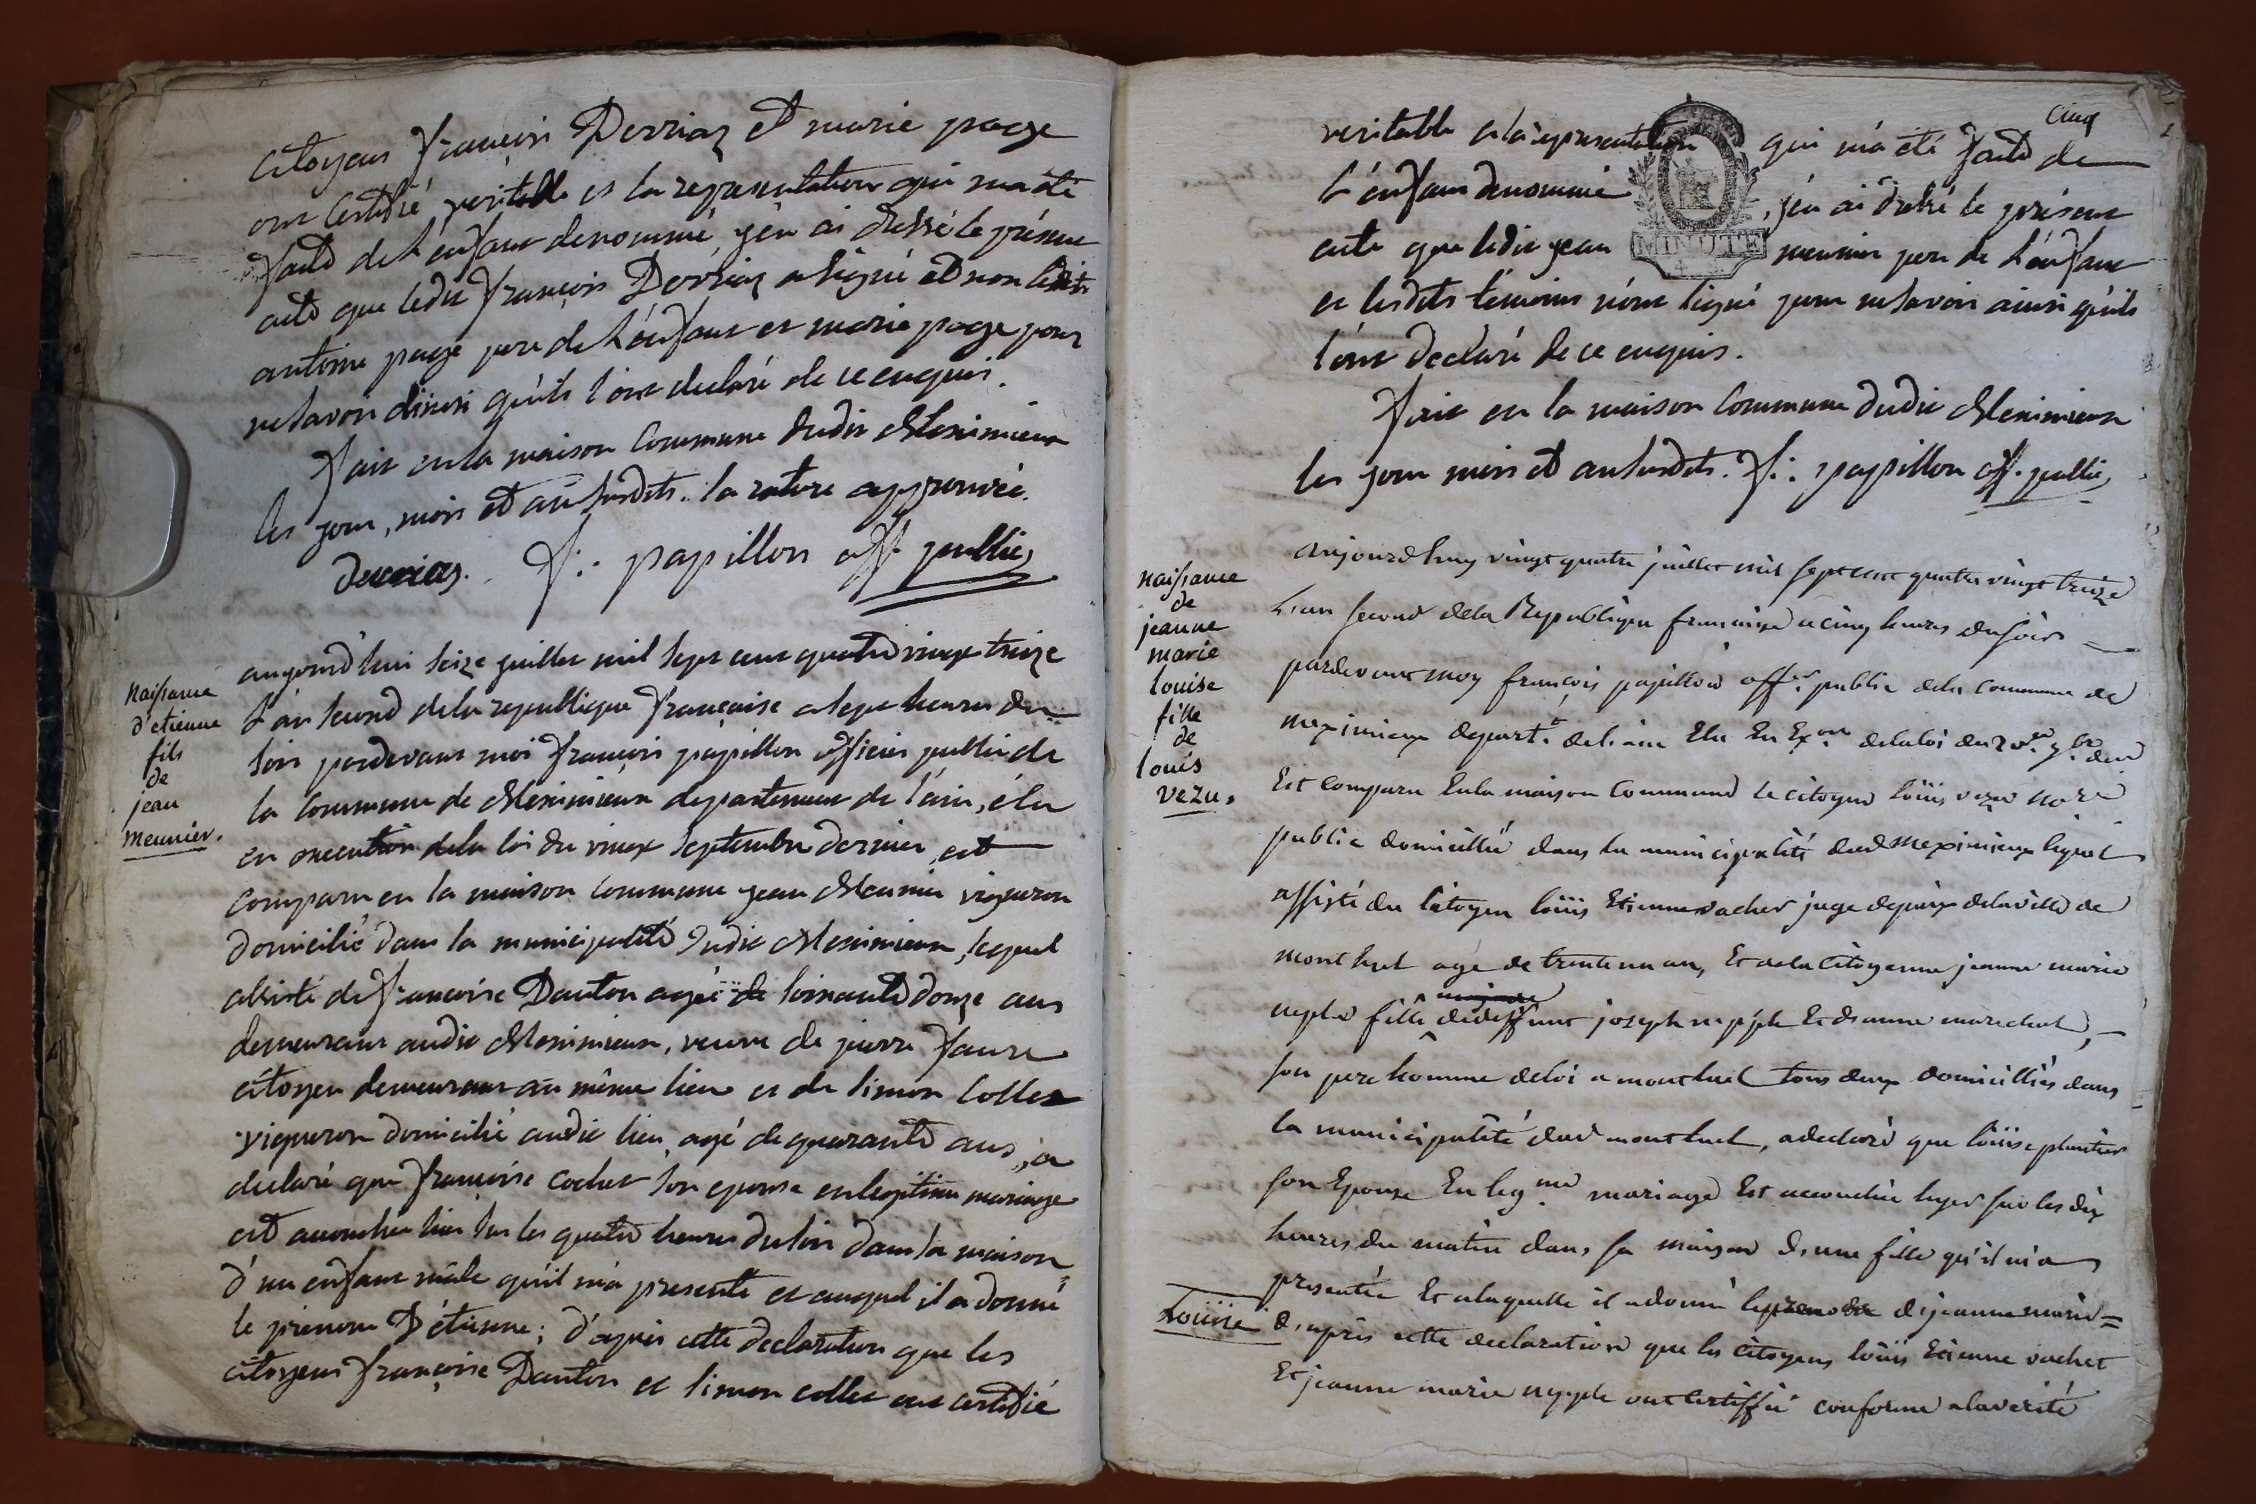 citoyens françois Derriaz et marie page
ont certifié veritable et la representation qui m'a été
faite de l'enfant denommé, j'en ai dressé le présent
acte que ledit françois Derriaz a signé et non lesdits
antoine page pere de l'enfant et marie page pour
ne savoir ainsi qu'ils l'ont declaré de ce enquis.
fait en la maison commune dudit Meximieux
les jour, mois et an susdits. la rature approuvée.
derriaz. f: papillon off. public
Naissance
d'etienne
fils
de
jean
meunier.
aujourd'hui seize juillet mil sept cent quatre vingt treize
l'an second de la republique française a sept heures du
soir pardevant moi françois papillon officier public de
la commune de Meximieux departement de l'ain, élu
en execution de la loi du vingt septembre dernier, est
comparu en la maison commune jean Meunier vigneron
domicilié dans la municipalité dudit Meximieux, lequel
assisté de françoise Danton agée de soixante douze ans
demeurant audit Meximieux, veuve de pierre faure
citoyen demeurant au même lieu et de simon collet
vigneron domicilié audit lieu, agé de quarante ans, a
declaré que françoise cochet son epouse en legitime mariage
est accouchée hier sur les quatre heures du soir dans sa maison
d'un enfant mâle qu'il m'a presenté et auquel il a donné
le prenom D'étienne; d'après cette declaration que les
citoyens françoise Danton et simon collet ont certifié
cinq
veritable et la representation qui m'a été faite de
l'enfant denommé, j'en ai dressé le présent
MINUTE
acte que ledit jean meunier pere de l'enfant
et lesdits témoins n'ont signé pour ne savoir ainsi qu'ils
l'ont declaré de ce enquis.
fait en la maison commune dudit Meximieux
les jour mois et an susdits. f: papillon off. public
naissance
de
jeanne
marie
louise
fille
de
louis
vezu.
aujourdhuy vingt quatre juillet mil sept cent quatre vingt treize
L'an second de la Republique francaise a cinq heures du soir
pardevant moy francois papillon offer. public de la commune de
meximieux depart.t de l'ain Elu En Exon. de la loi du 20e. 7bre. der
Est comparu En la maison commune le citoyen loüis vezu nore
public domicillié dans la municipalité dud meximieux lequel
assisté du citoyen loüis Etienne vachet juge de paix de la ville de
montluel agé de trente un an, Et de la citoyenne jeanne marie
nepple fille majeure de deffunt joseph nepple Et de anne marechal,
son pere homme de loi a montluel tous deux domicilliés dans
la municipalité dud montluel, a declaré que loüise plantier
son Epouse En legme. mariage Est accouchée hyer sur les dix
heures du matin dans sa maison d'une fille qu'il m'a
presentée Et a laquelle il a donné le prenom de jeanne marie=
Loüise d'après cette declaration que les citoyens loüis Etienne vachet
Et jeanne marie nepple ont certiffié conforme a la verité